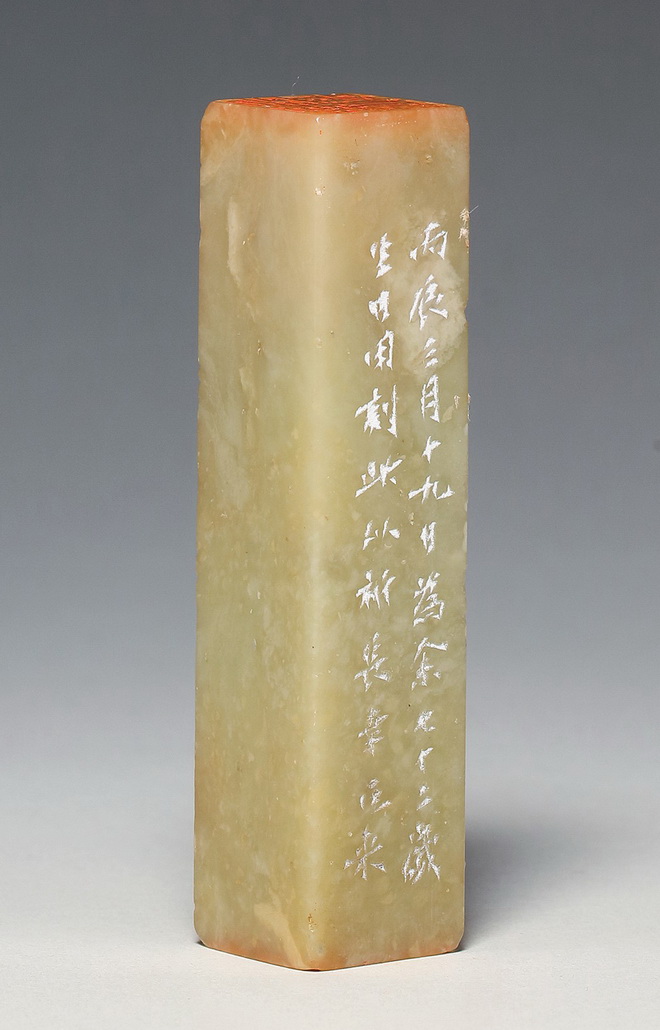 丙辰三月十九日為余七十二歲
生日用刻此以祈長巨來